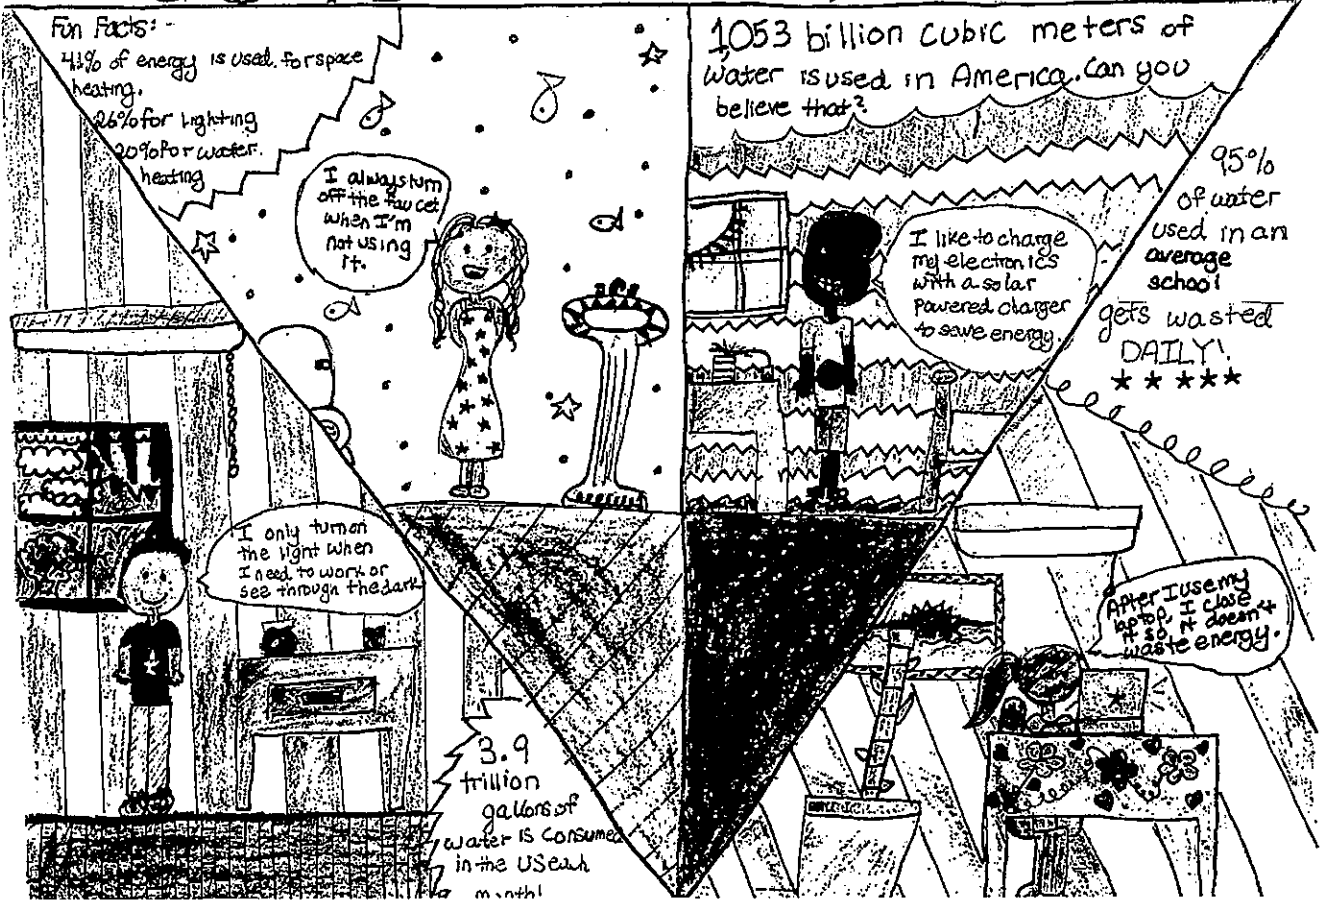 Fun Facts:-
41% of energy is used for space
heating.
26% for Lighting
20% for water.
heating
I always turn
off the faucet
when I'm
not using
it.
1,053 billion cubic meters of
water is used in America. Can you
believe that?
I like to charge
my electronics
with a solar
powered charger
to save energy.
95%
of water
used in an
average
school
gets wasted
DAILY!
I only turn on
the light when
I need to work or
see through the dark
After I use my
laptop, I close
it so it doesn't
waste energy.
3.9
trillion
gallons of
water is consumed
in the US each
month!